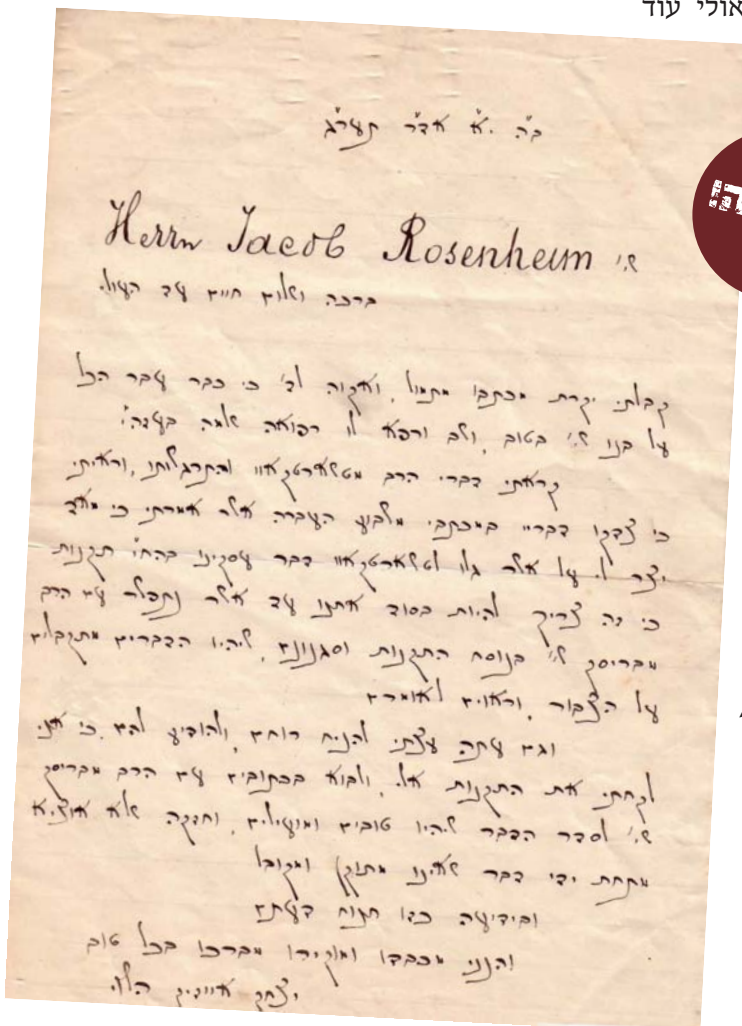 אולי עוד
ב״ה .א׳ אדר תער״ג
Herrn Jacob Rosenheim שי׳
ברכה ושלום חיים עד העול.
קבלתי יקרת מכתבו מתמול, ואקוה לד׳ כי כבר עבר הכל
על בנו שי׳ בטוב, ושב ורפא לו רפואה שלמה בעזה״י
קראתי דברי הרב מטשארטקאוו והתרגלותו, וראיתי
כי צדקו דבריי במכתבי משבוע העברה אשר אמרתי כי מאד
יצר לי על אשר גלו לטשארטקאוו דבר עסקינו בהח״י תקנות
כי זה צריך להיות בסוד אתנו עד אשר נתפשר עם הרב
מבריסק שי׳ בנוסח התקנות וסגנונם, שיהיו הדברים מתקבלים
על הצבור, וראוים לאומרם
וגם עתה עצתי להניח רוחם, ולהודיע להם, כי אני
לקחתי את התקנות אלי, ולבוא בכתובים עם הרב מבריסק
שי׳ לסדר הדבר שיהיו טובים ומועילים, וחזקה שלא אוציא
מתחת ידי דבר שאינו מתוקן ומקובל
ובידיעה כזו תנוח דעתם
והנני מכבדו ומוקירו מברכו בכל טוב
יצחק אייזיק הלוי